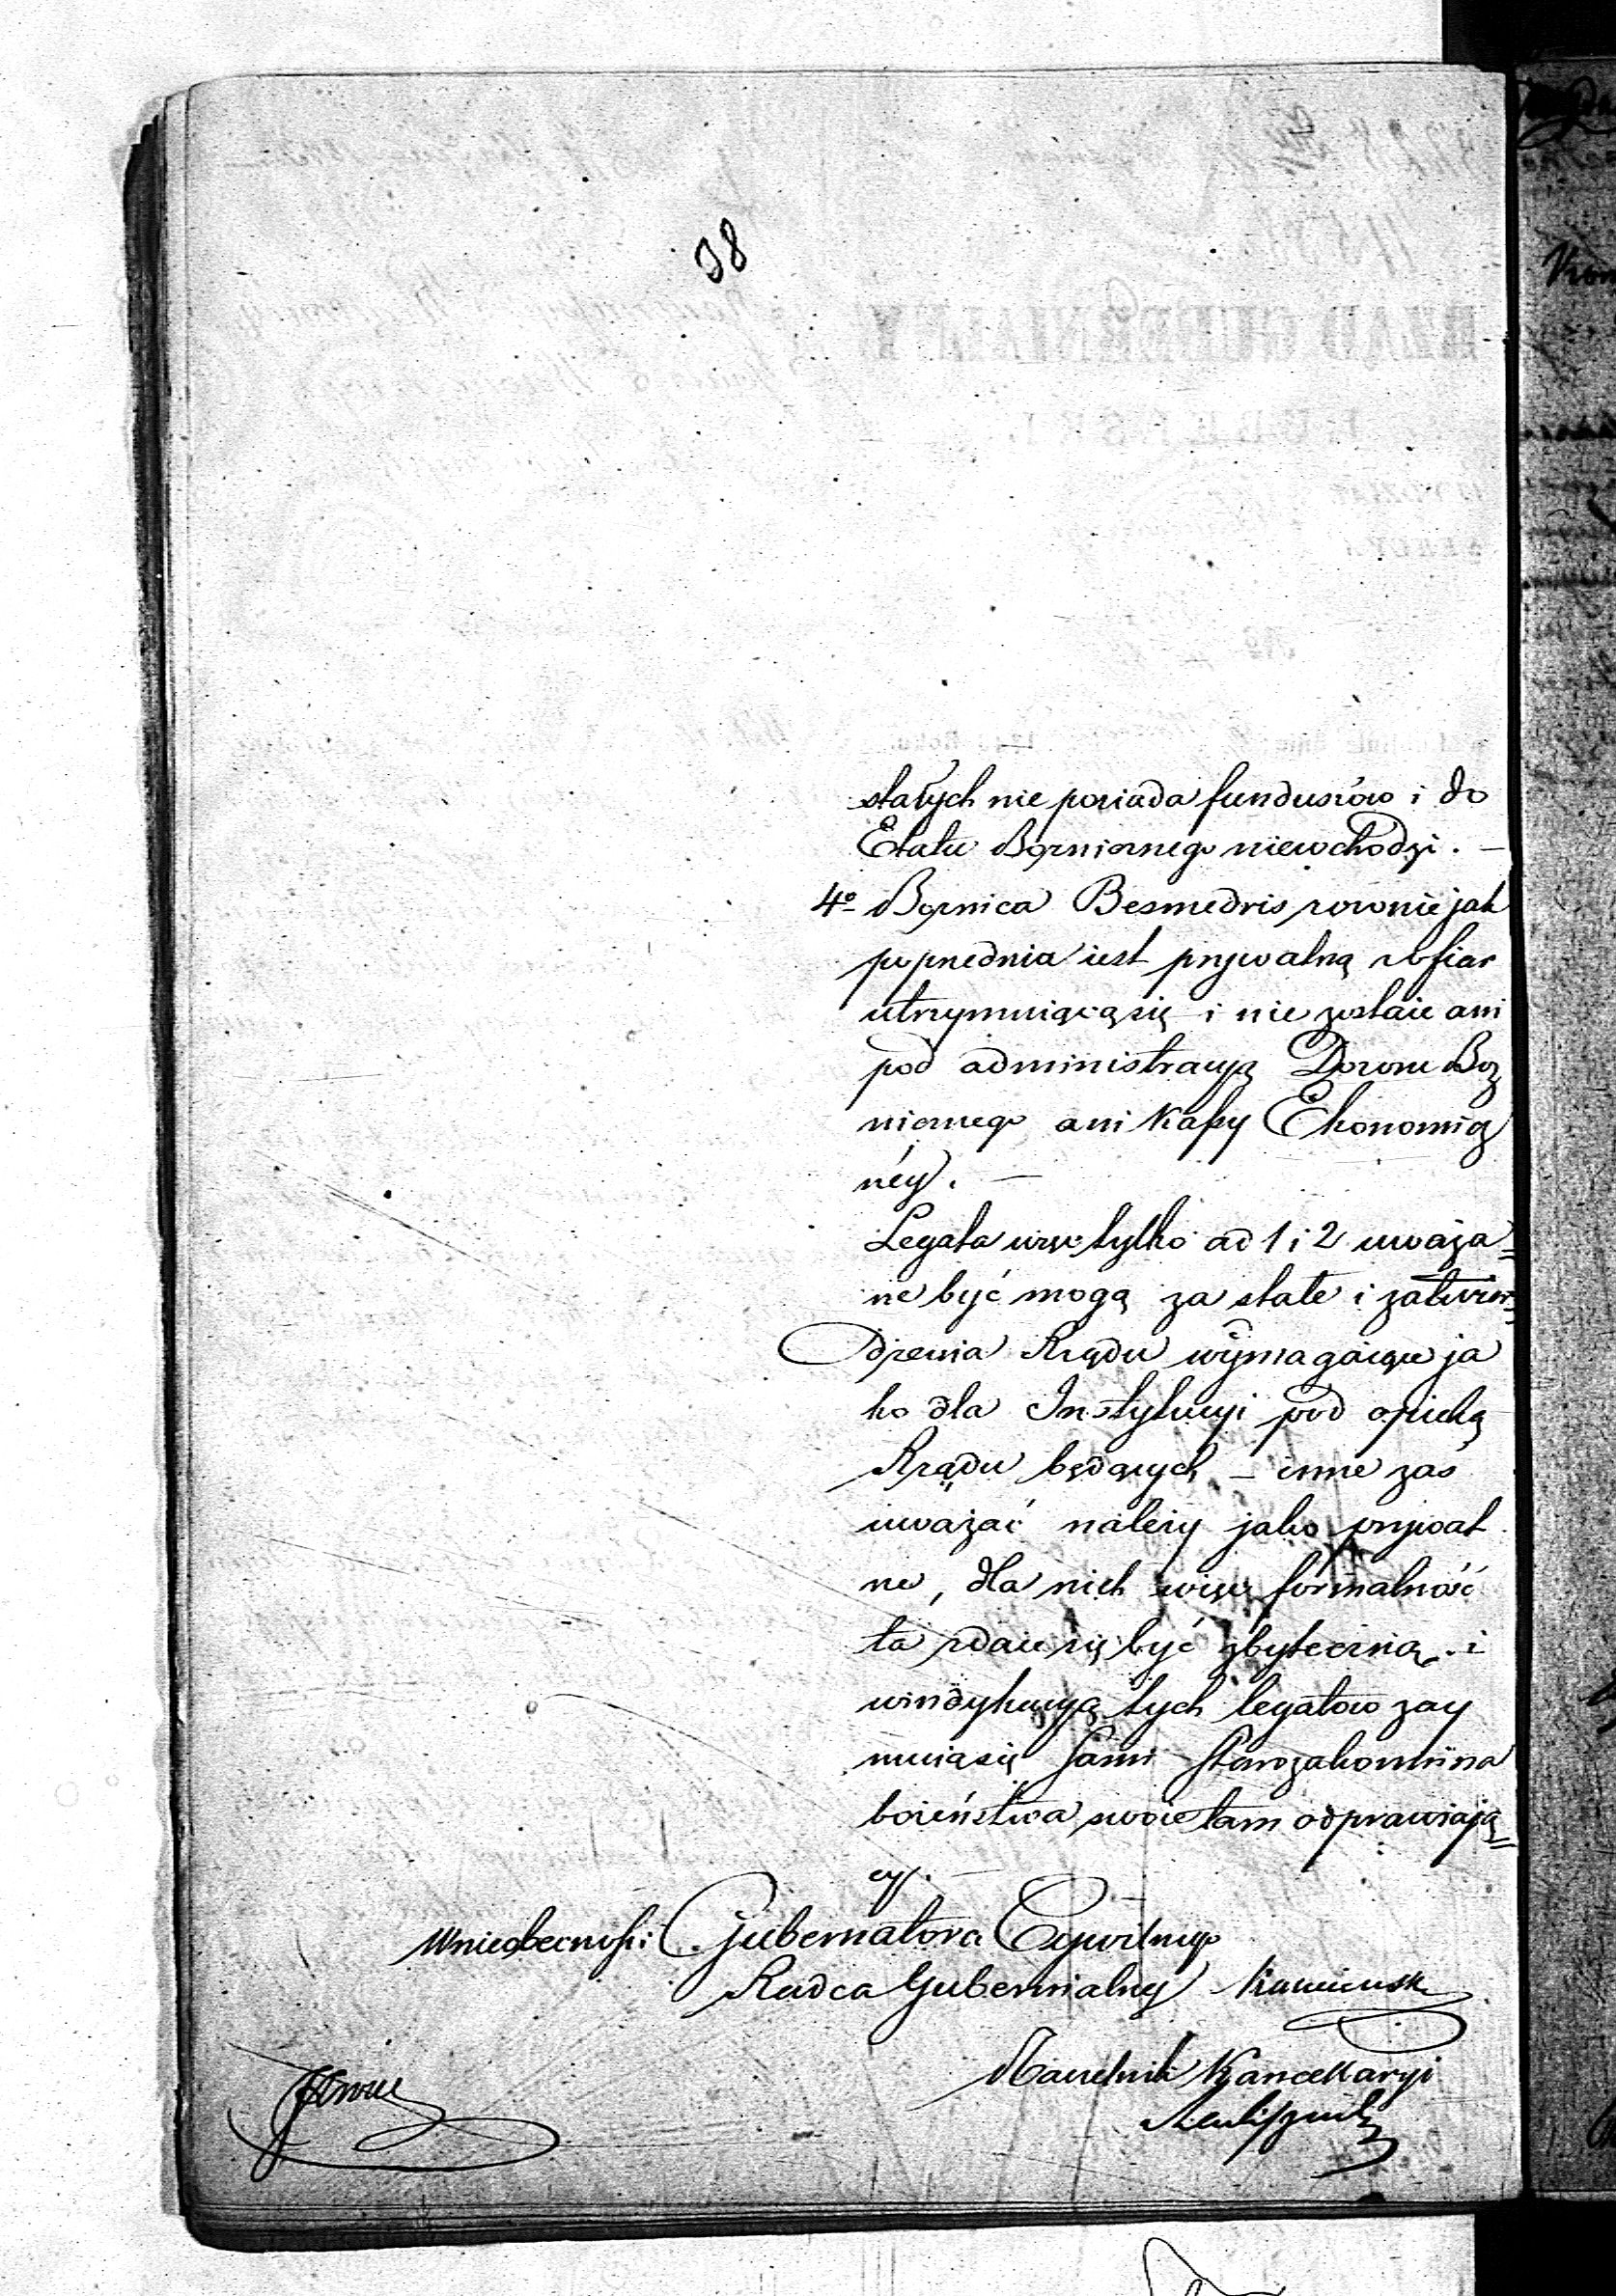 38
stałych nie posiada funduszów i do
Etatu Bożnicznego niewchodzi. —
4º Bożnica Besmedris równie jak
poprzednia iest prywatną z ofiar
utrzymuiącą się i nie zostaie ani
pod administracyą Dozoru Boż
nicznego ani Kassy Ekonomicz
néy. —
Legata więc tylko ad 1 i 2 uważa=
ne być mogą za stałe i zatwier=
dzenia Rządu wymagaiące ja
ko dla Instytucyi pod opieką
Rządu będących — inne zaś
uważać należy jako prywat
ne, dla nich więc formalność
ta zdaie się być zbyteczną i
windykacyą tych legatów zay
muią się sami Starozakonni na
bożeństwa swoie tam odprawiają=
cy. —
W nieobecności Gubernatora Cywilnego
Radca Gubernialny
Naczelnik Kancellaryi